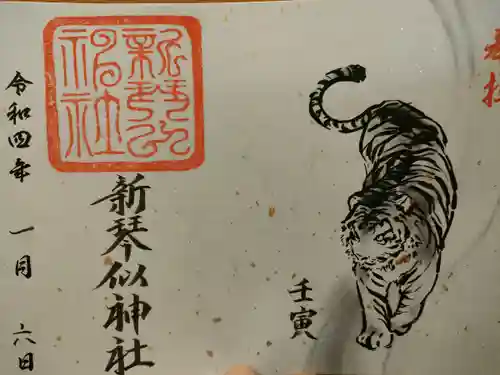 奉拝
壬寅
新琴似
神社
新琴似神社
令和四年 一月 六日